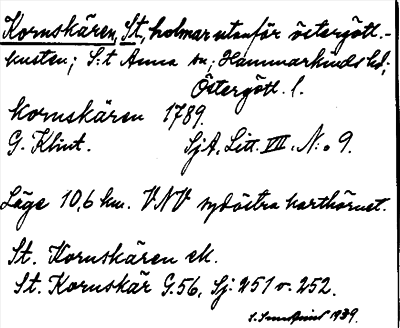 Kornskären, St, holmar utanför östergötl.-
kusten; S:t Anna sn; Hammarkinds hd;
Östergötl. l.
Kornskären 1789.
G. Klint. SjA, Litt. VII, N:o 9.
Läge 10,6 km. VNV sydöstra karthörnet.
St. Kornskären ek.
St. Kornskär G.56, Sj: 251 o. 252.
1939.